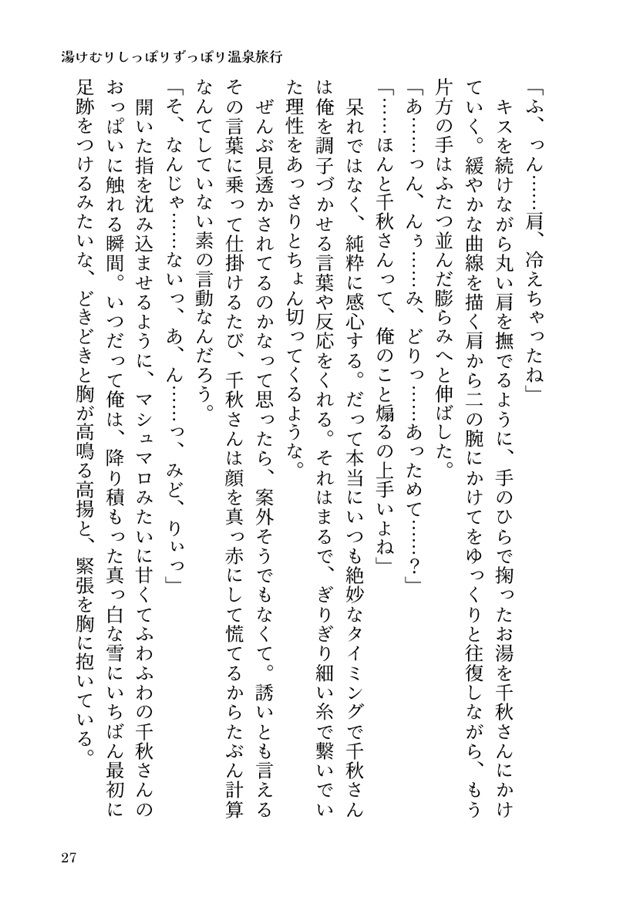 湯けむりしっぽりずっぽり温泉旅行
「ふ、っん……肩、冷えちゃったね」
キスを続けながら丸い肩を撫でるように、手のひらで掬ったお湯を千秋さんにかけ
ていく。緩やかな曲線を描く肩から二の腕にかけてをゆっくりと往復しながら、もう
片方の手はふたつ並んだ膨らみへと伸ばした。
「あ……っん、んぅ……み、どりっ……あっためて……？」
「……ほんと千秋さんって、俺のこと煽るの上手いよね」
呆れではなく、純粋に感心する。だって本当にいつも絶妙なタイミングで千秋さん
は俺を調子づかせる言葉や反応をくれる。それはまるで、ぎりぎり細い糸で繋いでい
た理性をあっさりとちょん切ってくるような。
ぜんぶ見透かされてるのかなって思ったら、案外そうでもなくて。誘いとも言える
その言葉に乗って仕掛けるたび、千秋さんは顔を真っ赤にして慌てるからたぶん計算
なんてしていない素の言動なんだろう。
「そ、なんじゃ……ないっ、あ、ん……っ、みど、りぃっ」
開いた指を沈み込ませるように、マシュマロみたいに甘くてふわふわの千秋さんの
おっぱいに触れる瞬間。いつだって俺は、降り積もった真っ白な雪にいちばん最初に
足跡をつけるみたいな、どきどきと胸が高鳴る高揚と、緊張を胸に抱いている。
27